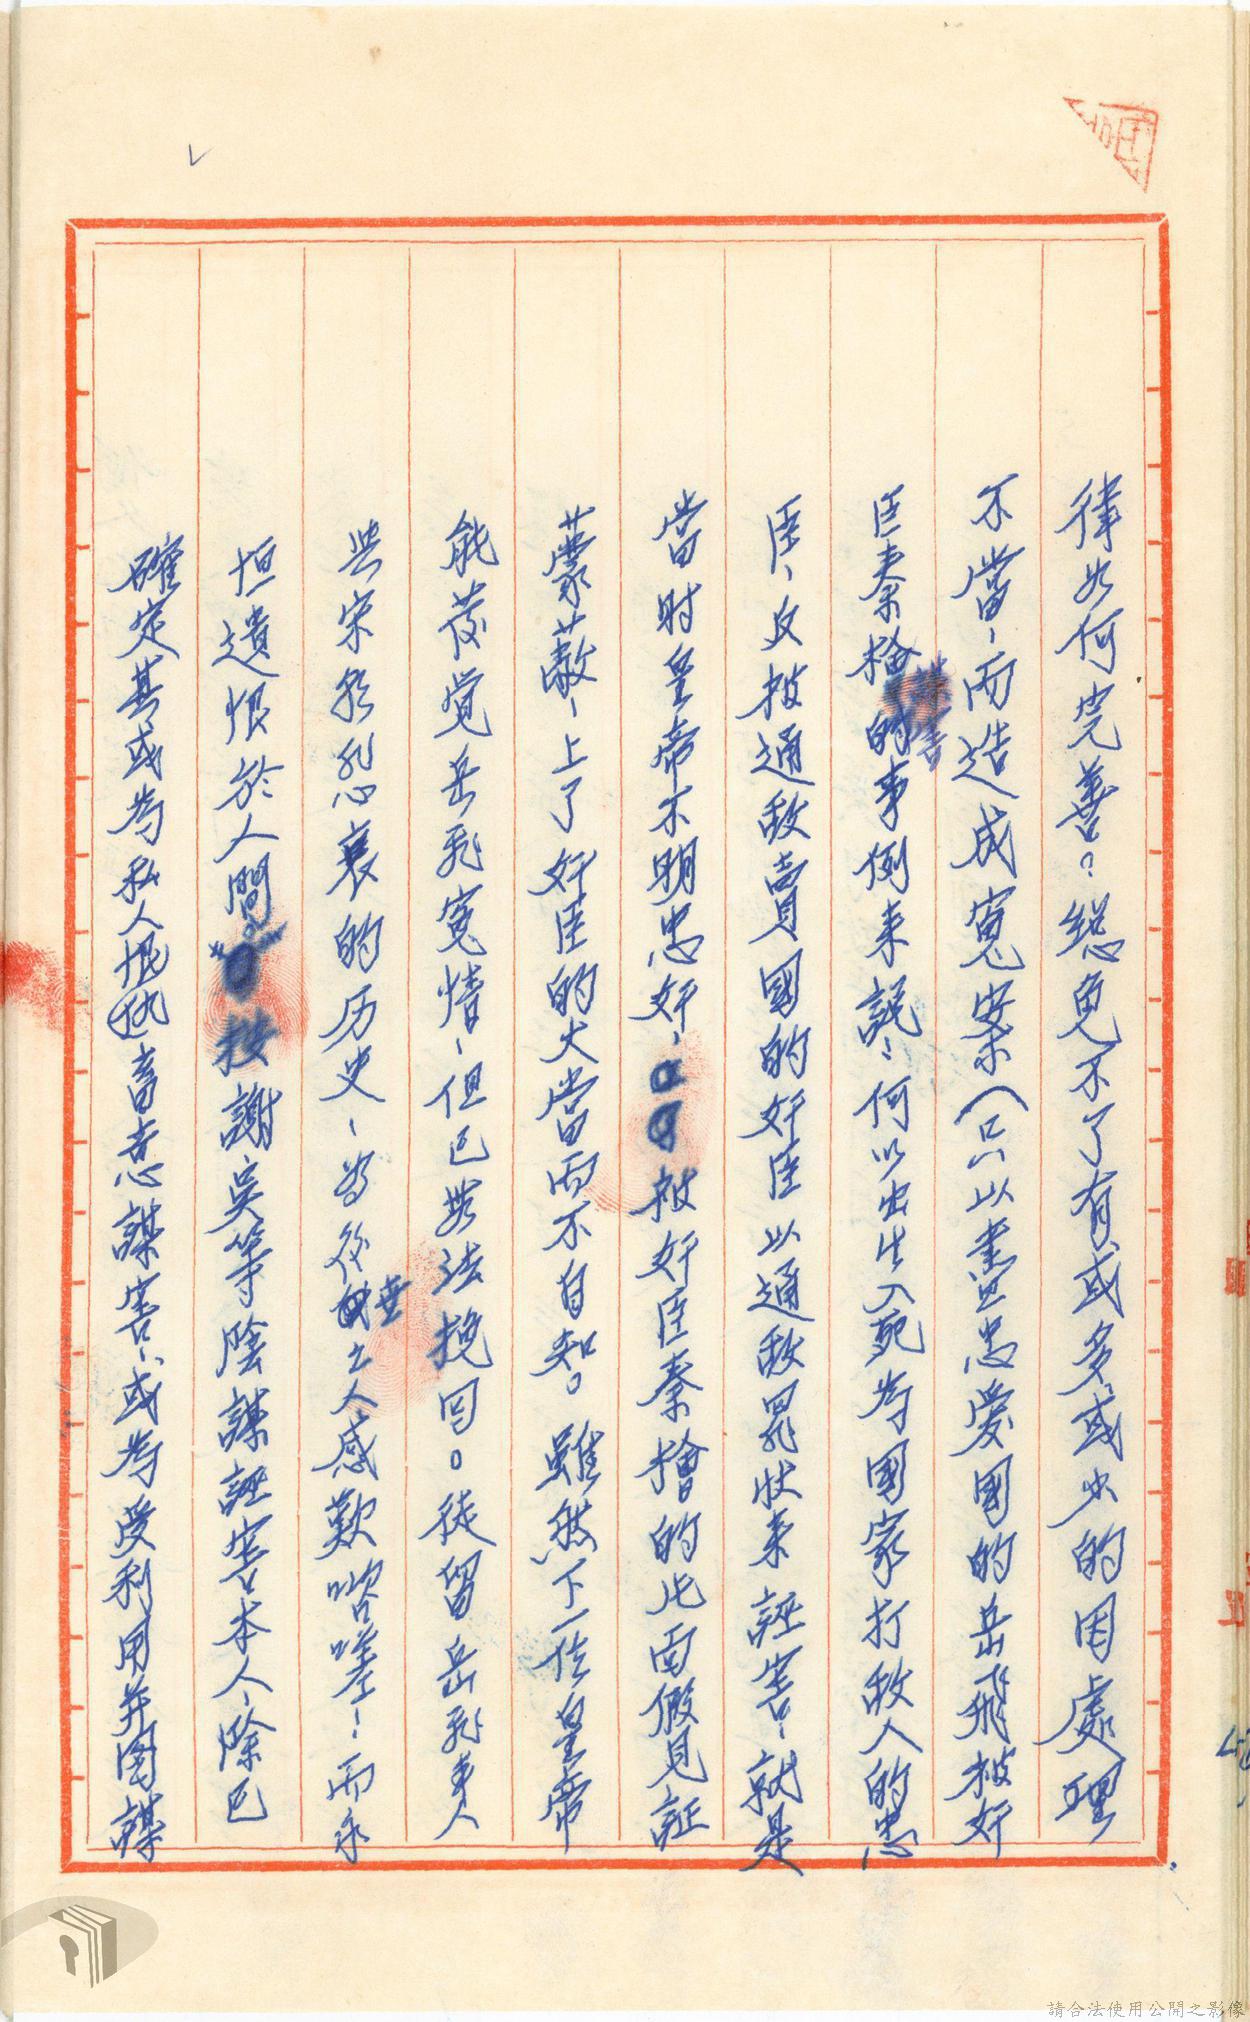 律如何完善。總免不了有或多或少的因處理
不當、而造成寃案（只以盡忠愛國的岳飛被奸
臣秦檜謀害的事例來説、何以出生入死為国家打敌人的忠
臣、反被通敌賣國的奸臣以通敌罪状来誣害、就是
當时皇帝不明忠奸、被奸臣秦檜的片面假見証
蒙蔽、上了奸臣的大當而不自知。雖然下一位皇帝
能发觉岳飛寃情、但已無法挽回。徒留岳飛事人
与宋 的历史、為後世之人感歎 嗟、而永
恒遺恨於人間。按謝、吳等陰謀誣害本人、除已
確定其或為私人恨仇蓄意謀害、或為受利用并图謀
請合法使用公開之影像